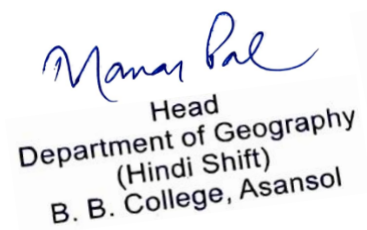 Manas Pal
Head
Department of Geography
(Hindi Shift)
B. B. College, Asansol